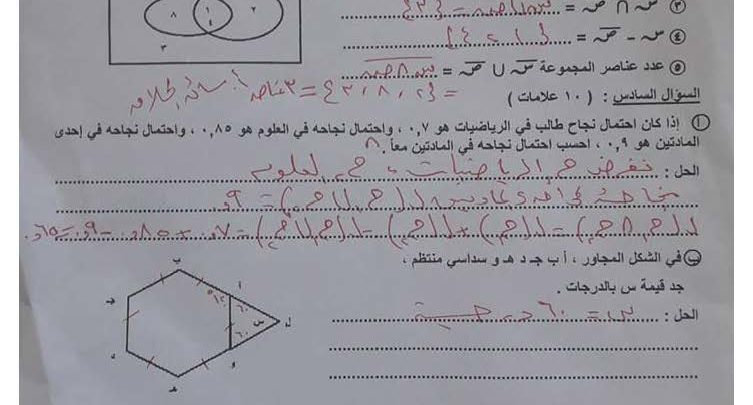 ٨ ١ ٢
٤
٣
٣ س ∩ ص = { ٣ }
٤ س - ص = { ١ ، ٤ }
٥ عدد عناصر المجموعة س ∪ ص = س ∩ ص
= { ٢ ، ٨ ، ٣ } = ٣ عناصر
السؤال السادس : ( ١٠ علامات )
أ) إذا كان احتمال نجاح طالب في الرياضيات هو ٠,٧ ، واحتمال نجاحه في العلوم هو ٠,٨٥ ، واحتمال نجاحه في إحدى
المادتين هو ٠,٩ ، احسب احتمال نجاحه في المادتين معاً .
الحل : نفرض ح١ الرياضيات ، ح٢ العلوم
نجاحه في احدى المادتين ل(ح١ ∪ ح٢) = ٩و.
ل(ح١ ∩ ح٢) = ل(ح١) + ل(ح٢) - ل(ح١ ∪ ح٢) = ٧و. + ٨٥و. - ٩و. = ٦٥و.
ب) في الشكل المجاور ، أ ب جـ د هـ و سداسي منتظم ،
جد قيمة س بالدرجات .
الحل : س = ٦٠ درجة
ب
أ
جـ
١٢٠
٦٠
س
ل
٦٠
د
و
هـ